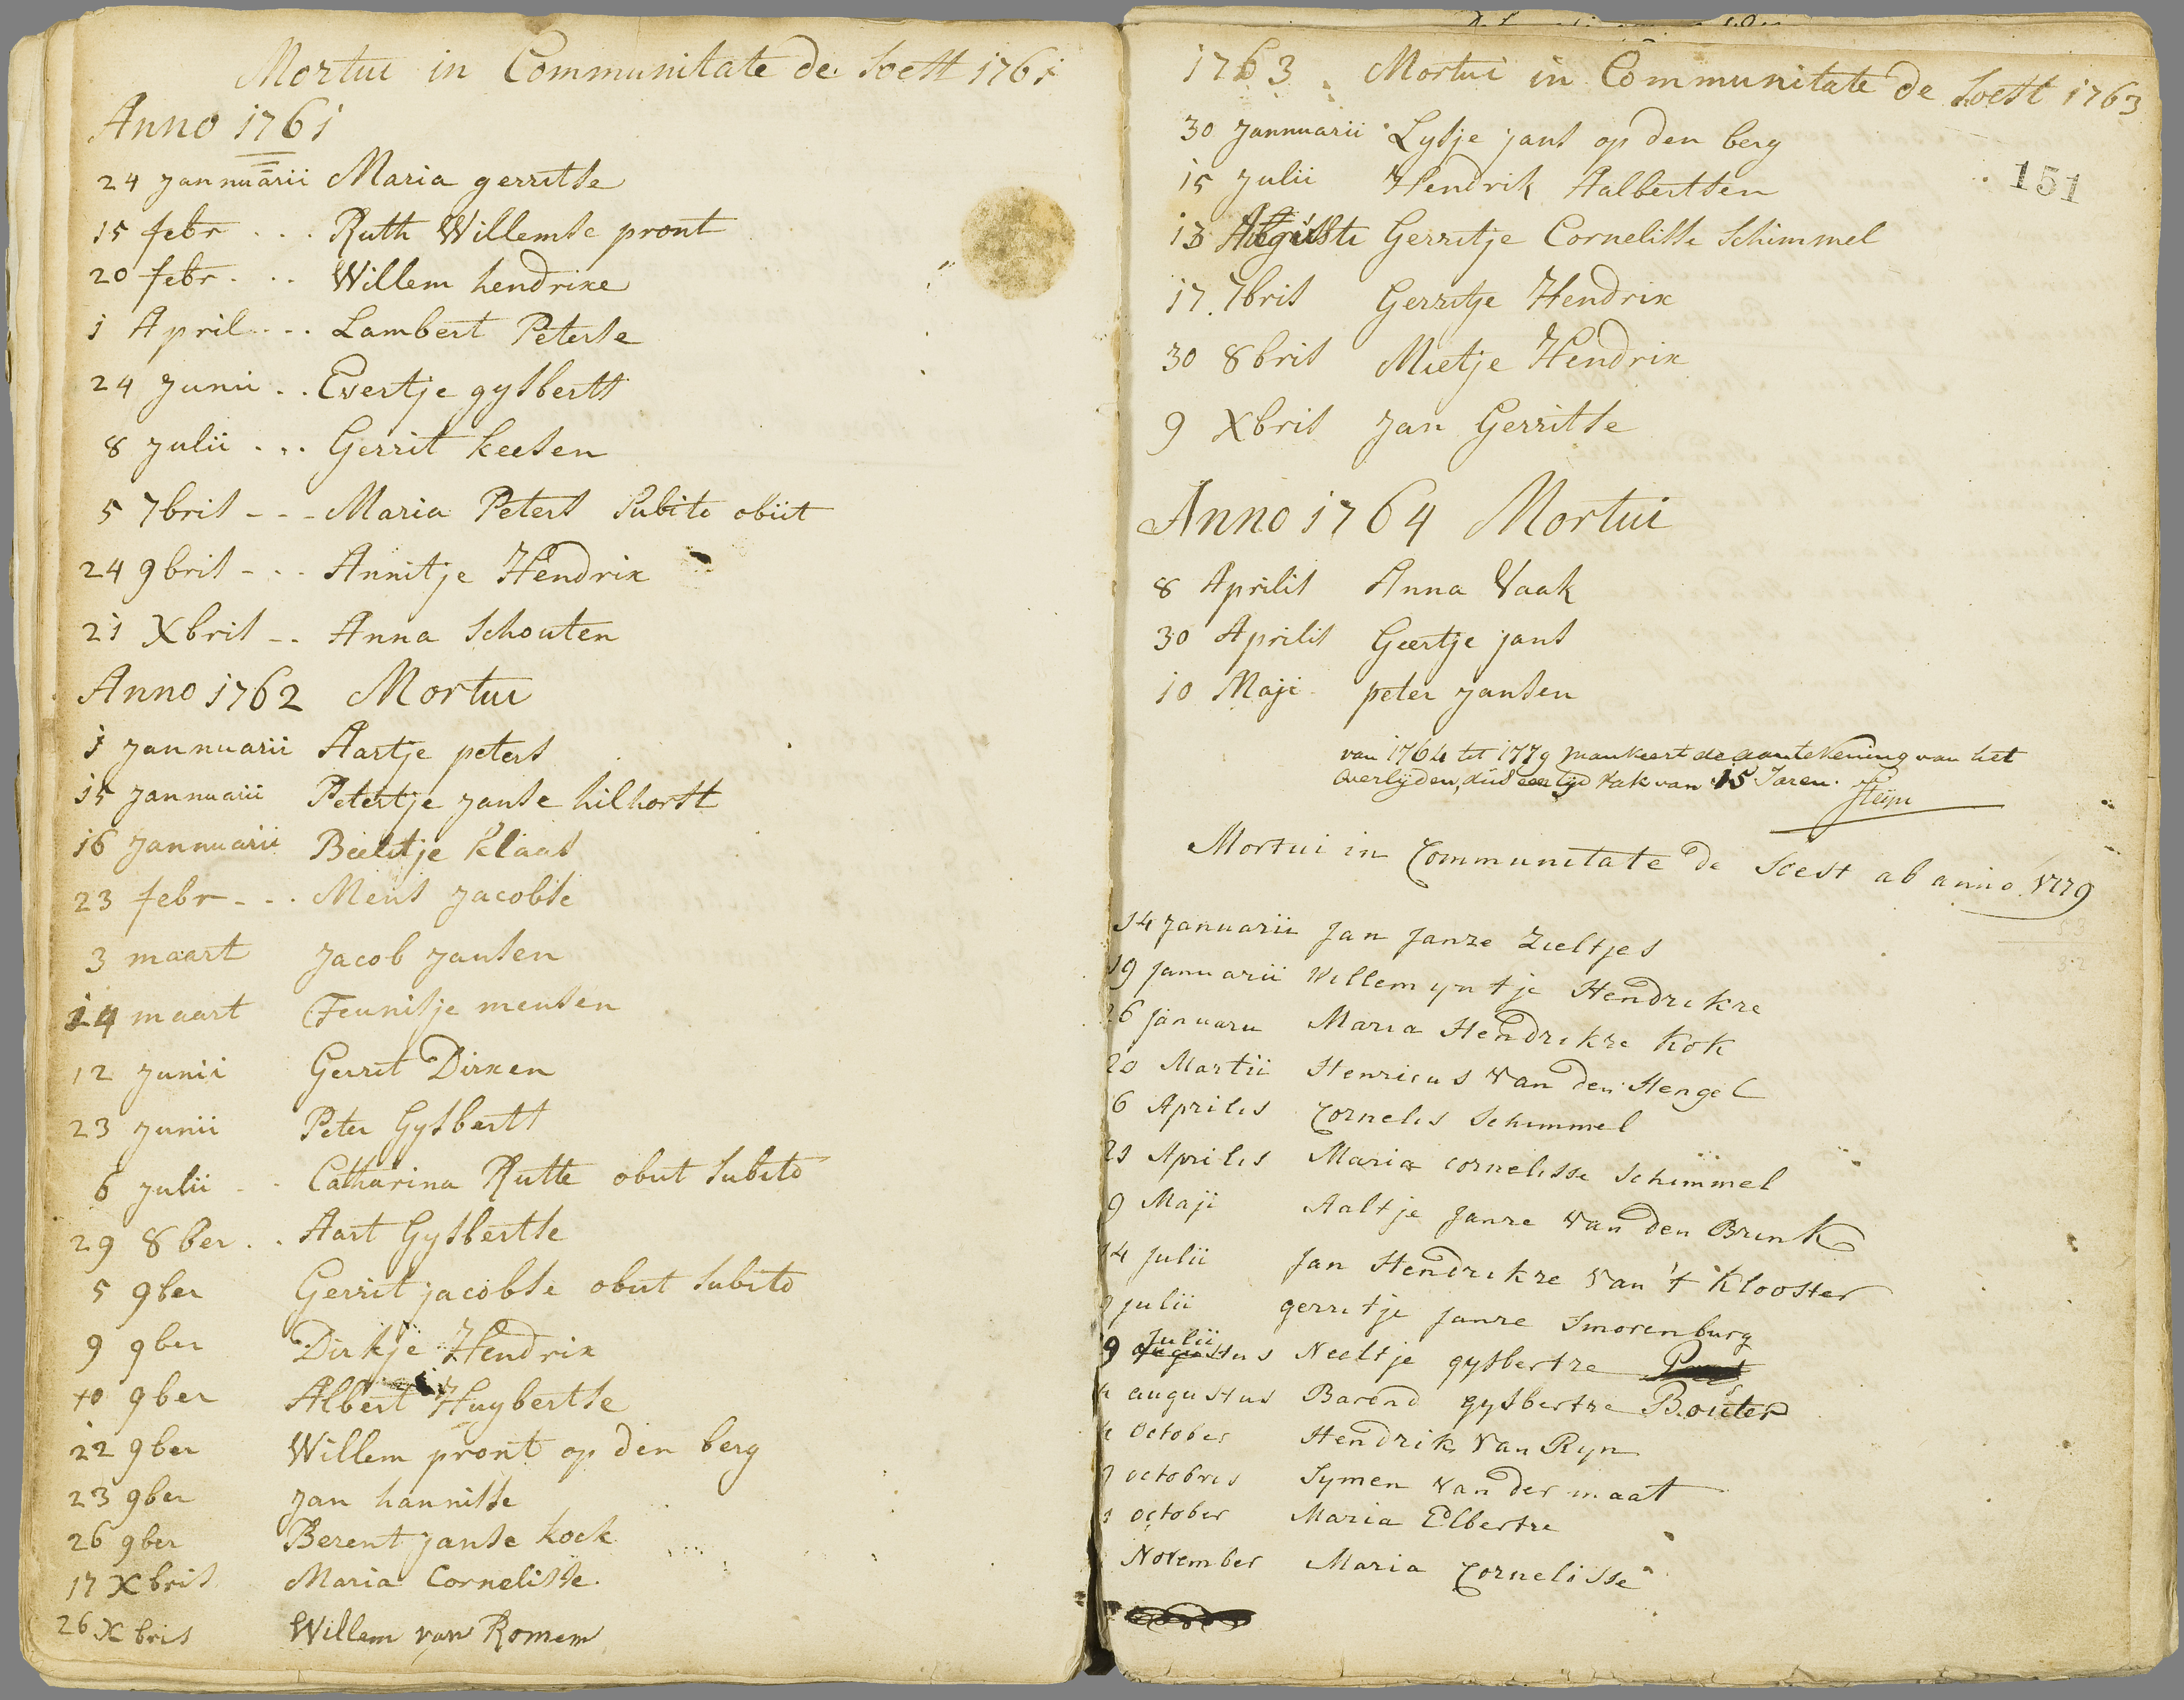 Mortui in Communitate de Soest 1761
Anno 1761
24 Jannuarii Maria gerritse
15 febr . . . Ruth Willemse pront
20 febr . . . Willem hendrixe
1 April . . . Lambert Peterse
24 Junii . . Evertje gysberts
8 Julii . . . Gerrit keesen
5 7bris - - - Maria Peters Subito obiit
24 9bris - . . Annitje Hendrix
21 Xbris - . Anna Schouten
Anno 1762 Mortui
1 Jannuarii Aartje peters
15 Jannuarii Petertje Janse hilhorst
16 Jannuarii Beeltje klaas
23 febr - . . Mens Jacobse
3 maart Jacob Jansen
14 maart Teunisje mensen
12 Junii Gerrit Dirxen
23 Junii Peter Gysberts
6 Julii - . Catharina Rutte obiit subito
29 8ber . . Aart Gysbertse
5 9ber Gerrit jacobse obiit subito
9 9ber Dirkje Hendrix
10 9ber Albert Huybertse
22 9ber Willem pront op den berg
23 9ber Jan hannisse
26 9ber Berent Janse kock
17 Xbris Maria Cornelisse.
26 Xbris Willem van Romem
1763 Mortui in Communitate de Soest 1763
151
30 Jannuarii Lysje jans op den berg
15 Julii Hendrik Aalbertsen
13 Augusti Gerritje Cornelisse Schimmel
17 7bris Gerritje Hendrix
30 8bris Mietje Hendrix
9 Xbris Jan Gerritse
Anno 1764 Mortui
8 Aprilis Anna Vaak
30 Aprilis Geertje jans
10 Maji peter Jansen
van 1764 tot 1779 mankeert de aantekening van het
overlijden, dus een tijd vak van 15 Jaren.
Steijn
Mortui in Communitate de Soest ab anno 1779
14 Januarii Jan Janze Zieltjes
19 Januarii Willemyntje Hendrikze
26 Januarii Maria Hendrikze Kok
20 Martii Henricus van den Hengel
6 Aprilis Cornelis Schimmel
21 Aprilis Maria cornelisse Schimmel
9 Maji Aaltje Janze van den Brink
14 Julii Jan Hendrikze van 't Klooster
Julii gerritje Janze Smorenburg
Julii
9 augustus Neeltje gysbertze
augustus Barend gysbertze Bouter
October Hendrik van Ryn
octobris Symen van der maat
october Maria Elbertze
November Maria Cornelisse